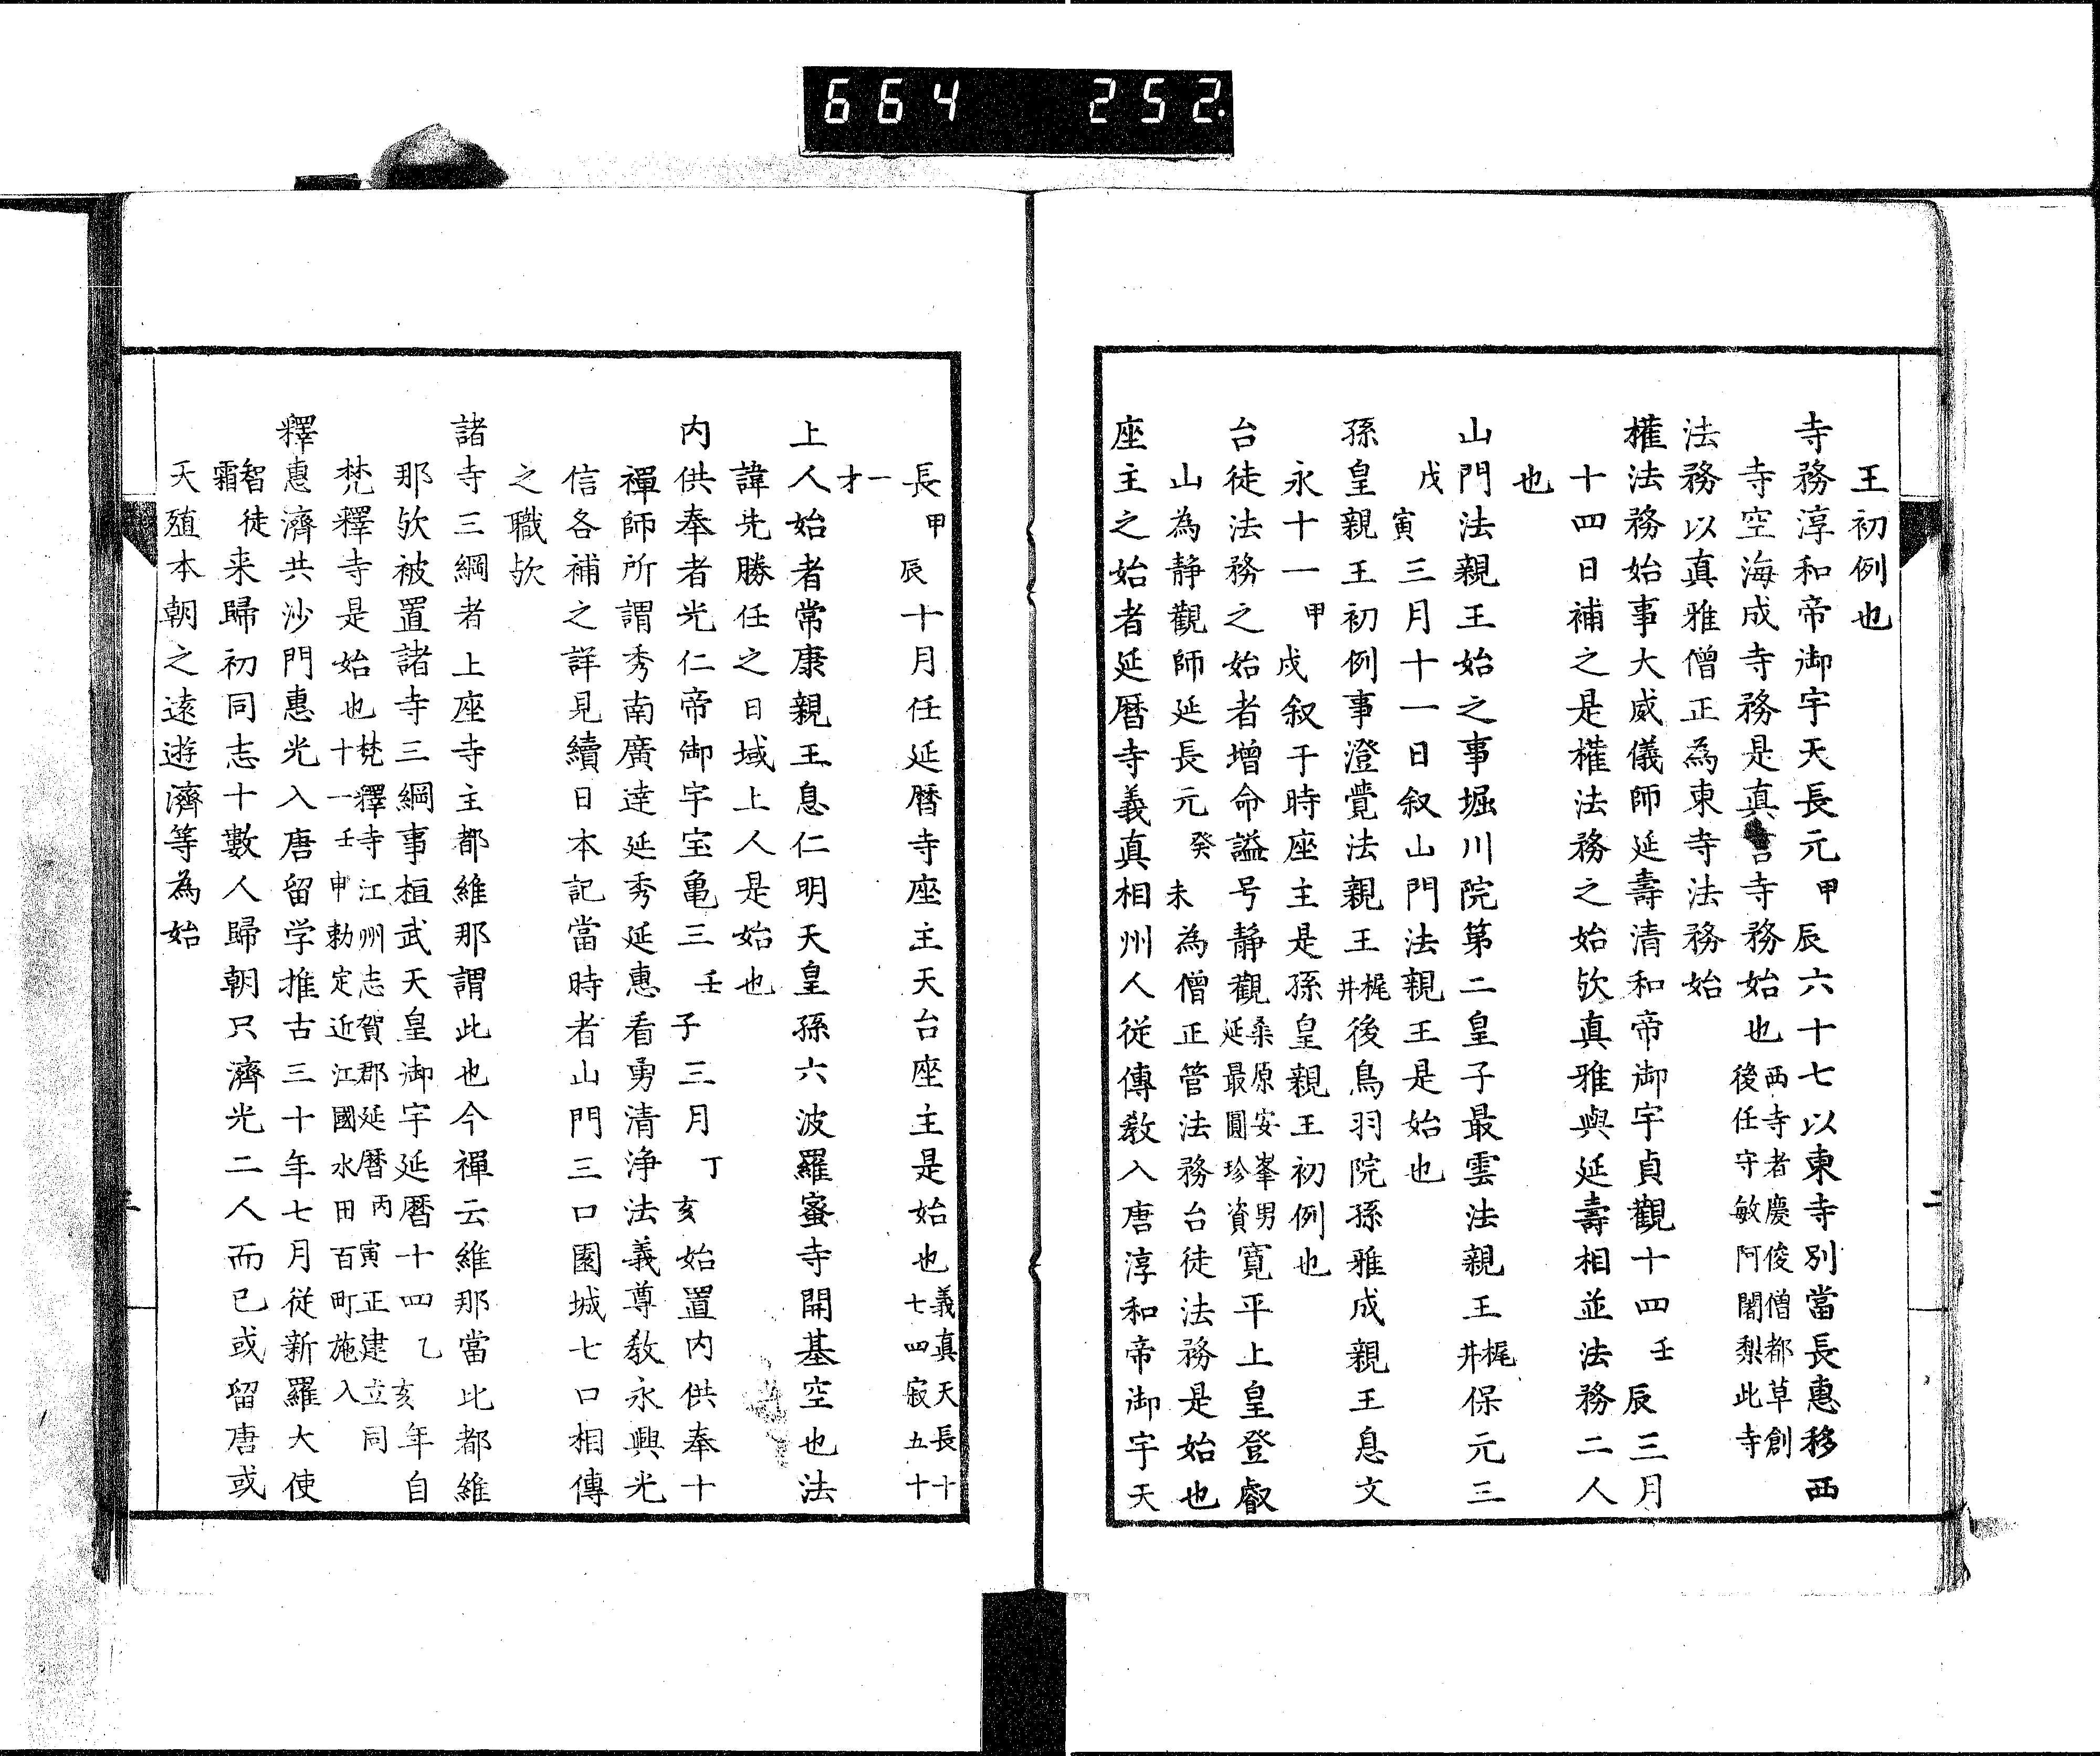 664 252.
王初例也
寺務淳和帝御宇天長元甲辰六十七以東寺別當長惠移西
寺空海成寺務是真言寺務始也西寺者慶俊僧都草創後任守敏阿闍梨此寺
法務以真雅僧正為東寺法務始
權法務始事大威儀師延壽清和帝御宇貞觀十四壬辰三月
十四日補之是權法務之始欤真雅與延壽相並法務二人
也
山門法親王始之事堀川院第二皇子最雲法親王梶井保元三
戊寅三月十一日叙山門法親王是始也
孫皇親王初例事澄覺法親王梶井後鳥羽院孫雅成親王息文
永十一甲戌叙于時座主是孫皇親王初例也
台徒法務之始者增命謚号静觀桑原安峯男延最圓珍資寬平上皇登叡
山為静觀師延長元癸未為僧正管法務台徒法務是始也
座主之始者延暦寺義真相州人従傳教入唐淳和帝御宇天
二
長甲辰十月任延暦寺座主天台座主是始也義真天長十七四寂五十
一才
上人始者常康親王息仁明天皇孫六波羅蜜寺開基空也法
諱先勝任之日域上人是始也
内供奉者光仁帝御宇宝亀三壬子三月丁亥始置内供奉十
禪師所謂秀南廣達延秀延惠看勇清浄法義尊教永興光
信各補之詳見續日本記當時者山門三口園城七口相傳
之職欤
諸寺三綱者上座寺主都維那謂此也今禪云維那當比都維
那欤被置諸寺三綱事桓武天皇御宇延暦十四乙亥年自
梵釋寺是始也梵釋寺江州志賀郡延暦丙寅正建立同十一壬申勅定近江國水田百町施入
釋惠濟共沙門惠光入唐留学推古三十年七月従新羅大使
智霜徒来歸初同志十數人歸朝只濟光二人而已或留唐或
天殖本朝之遠遊濟等為始
三